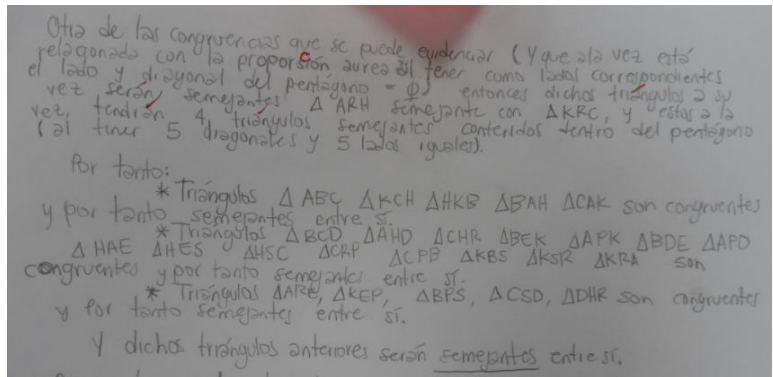 Otra de las congruencias que se puede evidenciar (Y que a la vez está
relacionada con la proporsión aurea al tener como lados correspondientes
el lado y diagonal del pentágono = Φ) entonces dichos triángulos a su
vez serán semejantes Δ ARH semejante con ΔKRC, y estos a la
vez, tendrán 4 triángulos semejantes contenidos dentro del pentágono
(al tener 5 diagonales y 5 lados iguales).
Por tanto:
* Triángulos Δ ABC ΔKCH ΔHKB ΔBAH ΔCAK son congruentes
y por tanto semejantes entre sí.
* Triángulos ΔBCD ΔAHD ΔCHR ΔBEK ΔAPK ΔBDE ΔAPD
Δ HAE ΔHES ΔHSC ΔCRP ΔCPB ΔKBS ΔKSR ΔKRA son
congruentes y por tanto semejantes entre sí.
* Triángulos ΔARE, ΔKEP, ΔBPS, ΔCSD, ΔDHR son congruentes
y por tanto semejantes entre sí.
Y dichos triángulos anteriores serán semejantes entre sí.